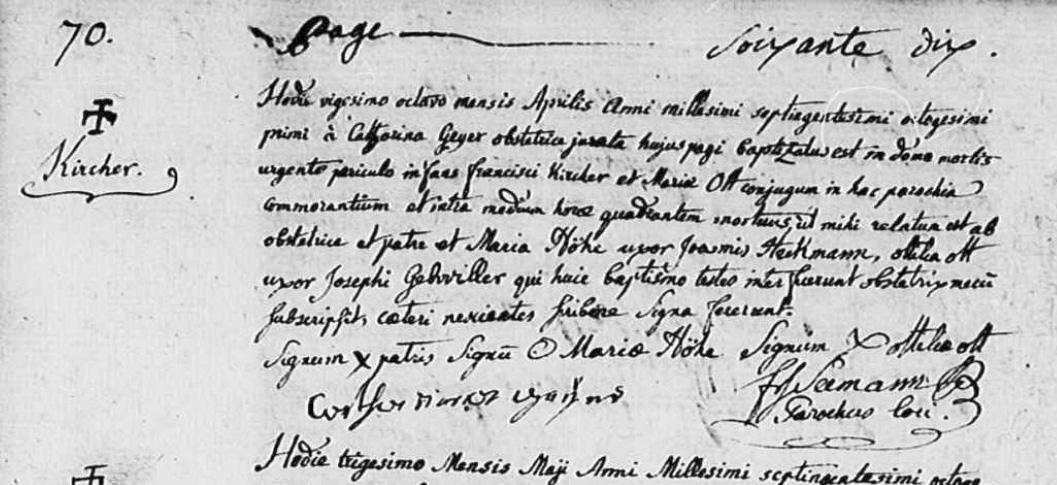 70. page soixante dix.
Kircher.
Hodie vigesimo octavo mensis Aprilis anni millesimi septingentesimi octogesimi
primi à Catharina Geyer obstetrice jurata hujus pagi baptizatus est in domo mortis
urgente periculo infans francisci Kircher et Mariæ Ott conjugum in hac parochia
commorantium et intra medium horæ quadrantem mortuus, ut mihi relatum est ab
obstetrice et patre et Maria Höhe uxor Joannis Heckmann, ottilia ott
uxor Josephi Gebviller qui huic baptismo testes interfuerunt obstetrix mecū
subscripsit, cæteri nescientes scribere signa fecerunt.
Signum x patris Signū O Mariæ Höhe Signum X ottilia ott
Seemann
Parochus loci.
Hodie trigesimo Mensis Maji Anni Millesimi septingentesimi octoge